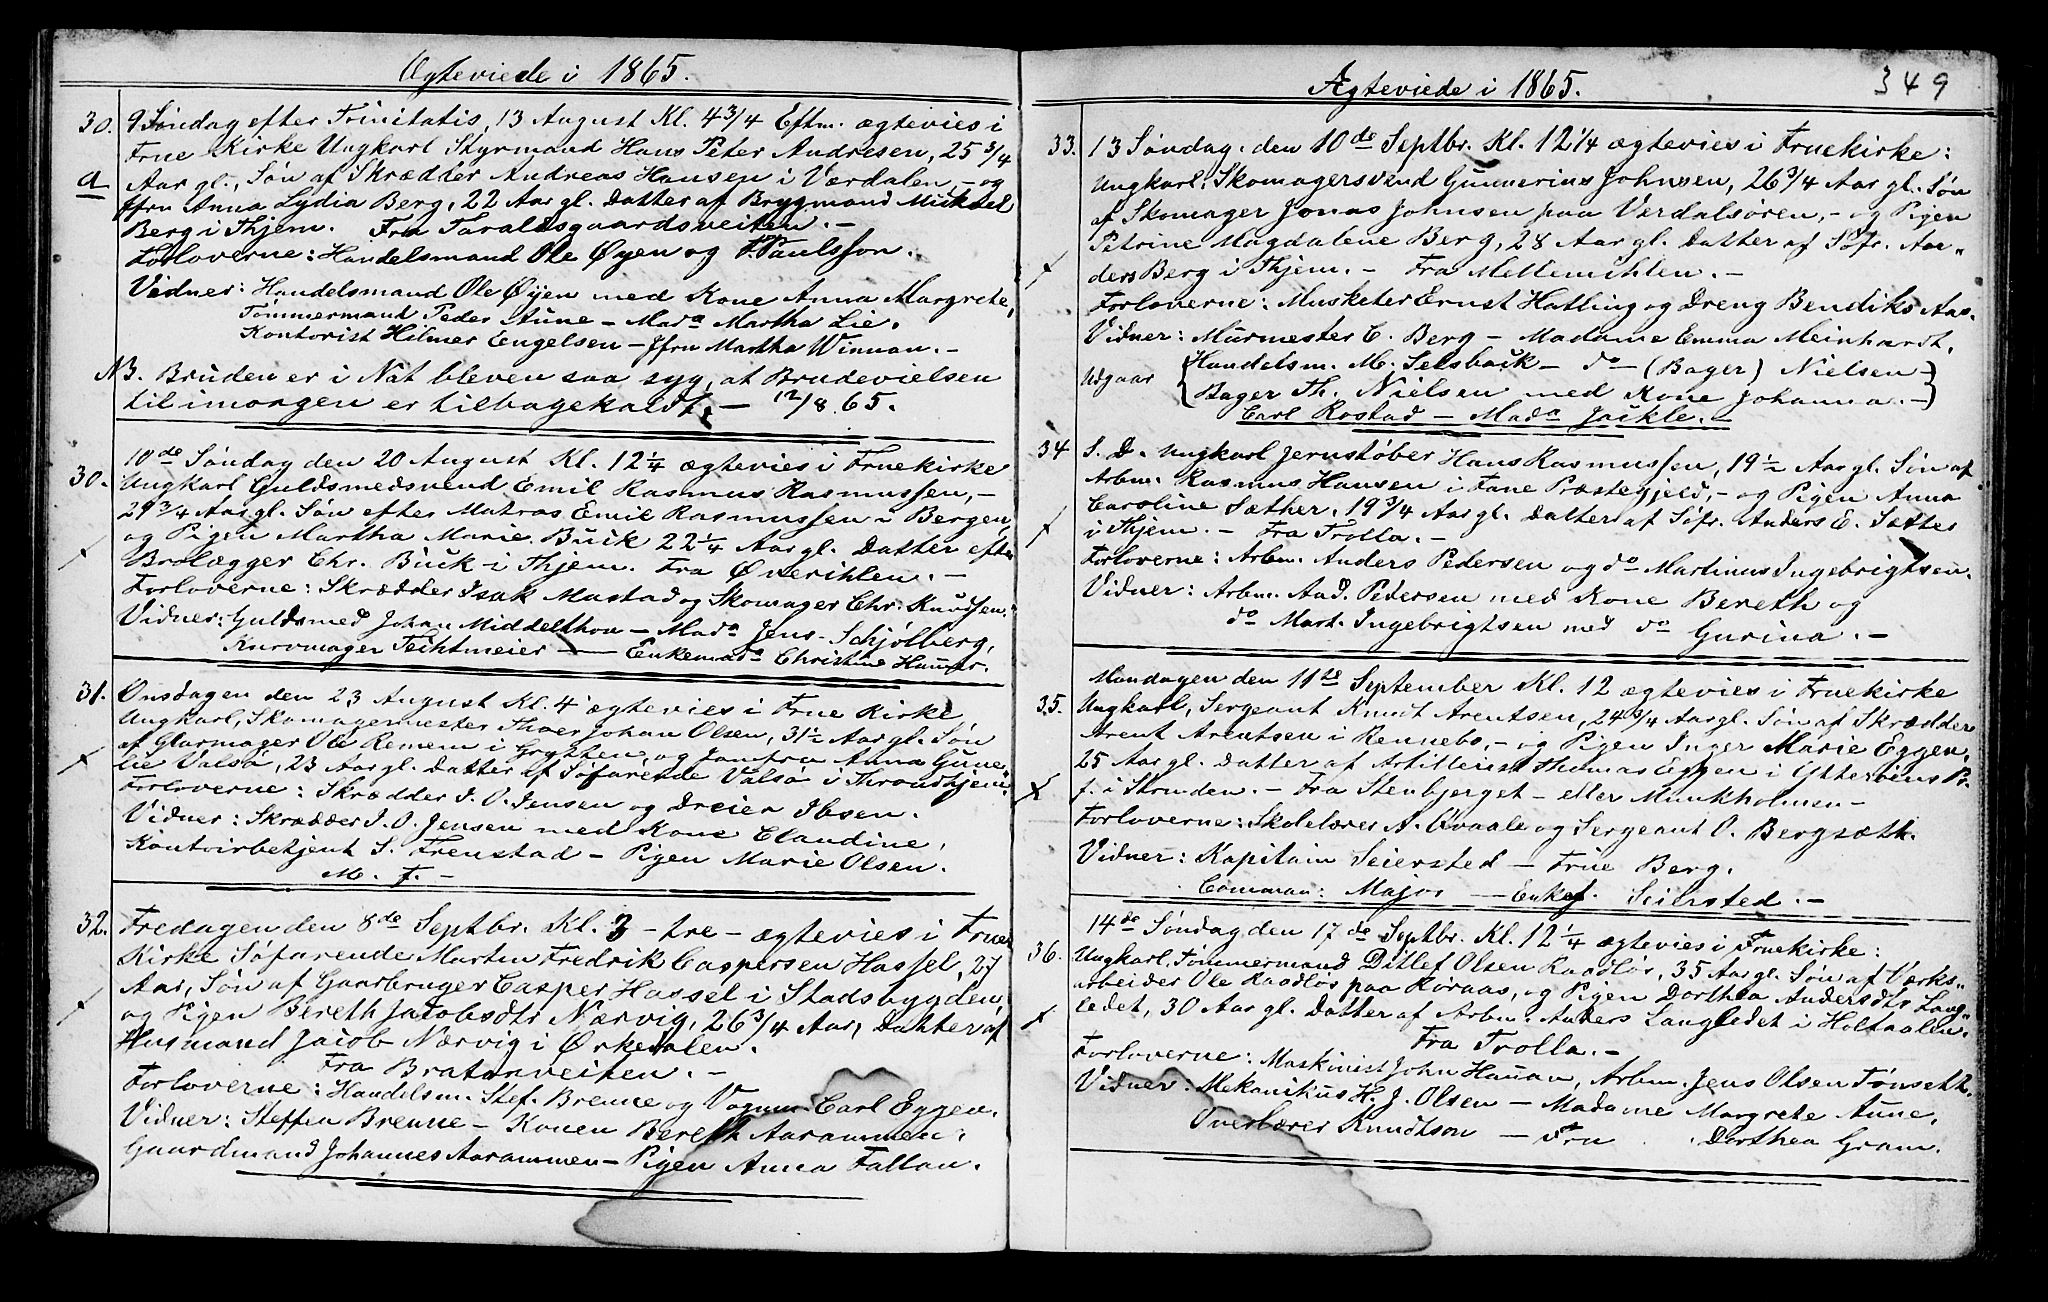 Ægteviede i 1865.
30. 9 Søndag efter Trinitatis, 13 August Kl. 4 3/4 Eftm. ægtevies i
Frue Kirke Ungkarl Styrmand Hans Peter Andresen, 25 3/4
a Aar gl., Søn af Skrædder Andreas Hansen i Værdalen, - og
Jfru Anna Lydia Berg, 22 Aar gl. Datter af Brygmand Mickael
Berg i Thjem. Fra Taraldsgaardsveiten. -
Forloverne: Handelsmand Ole Øyen og Paulsson.
Vidner: Handelsmand Ole Øyen med Kone Anna Margrete,
Tømmermand Peder Aune - Mada Martha Lie.
Kontorist Hilmer Engelsen - Jfru Martha Winnan. -
NB. Bruden er i Nat bleven saa syg, at Brudevielsen
til imorgen er tilbagekaldt. - 12/8 65.
30. 10de Søndag den 20 August Kl. 12 1/4 ægtevies i Fruekirke
Ungkarl Guldsmedsvend Emil Rasmus Rasmussen, -
29 3/4 Aar gl. Søn efter Matros Emil Rasmussen i Bergen,
og Pigen Martha Marie Buck 22 1/4 Aar gl. Datter efter
Brolægger Chr. Buck i Thjem. Fra Øverihlen. -
Forloverne: Skrædder Isak Mastad og Skomager Chr. Knudsen.
Vidner: Guldsmed Johan Middelthon - Mada Jens Schjølberg,
Kurvmager Teihtmeier - Enkemada Christine
31. Onsdagen den 23 August Kl. 4 ægtevies i Frue Kirke,
Ungkarl, Skomagermester Thoer Johan Olsen, 31 1/2 Aar gl. Søn
af Glarmager Ole Remem i Grytten, og Jomfru Anna Gune-
lie Valsø, 23 Aar gl. Datter af Søfarende Valsø i Throndhjem.
Forloverne: Skrædder J. O. Jensen og Dreier Ibsen.
Vidner: Skrædder J. O. Jensen med Kone Claudine,
Kontoirbetjent S. Frenstad - Pigen Marie Olsen.
M. F. -
32. Fredagen den 8de Septbr. Kl. 3 - tre - ægtevies i Frue
Kirke Søfarende Morten Fredrik Caspersen Hassel, 27
Aar, Søn af Gaardbruger Casper Hassel i Stadsbygden,
og Pigen Bereth Jacobsdtr Nærvig, 26 3/4 Aar, Datter af
Husmand Jacob Nærvig i Ørkedalen.
Fra Bratørveiten. -
Forloverne: Handelsm. Stef. Brenne og Vognm. Carl Eggen.
Vidner: Steffen Brenne - Konen Bereth Aarammen,
Gaardmand Johannes Aarammen - Pigen Anna Fallan.
Ægteviede i 1865. 349
33. 13 Søndag. den 10de Septbr. Kl. 12 1/4 ægtevies i Fruekirke:
Ungkarl, Skomagersvend Gunnerius Johnsen, 26 3/4 Aar gl. Søn
af Skomager Jonas Johnsen paa Værdalsøren, - og Pigen
Petrine Magdalene Berg, 28 Aar gl. Datter af Søfr. An-
ders Berg i Thjem. - Fra Mellemihlen. -
Forloverne: Musketer Ernst Hatling og Dreng Bendiks Aas.
Vidner: Murmester C. Berg - Madame Emma Meinhardt,
Udgaar (Handelsm. M. Selsback - do - (Bager) Nielsen -)
(Bager Th. Nielsen med Kone Johanna. -)
Carl Rostad - Mada Jackle. -
34 S. D. Ungkarl Jernstøber Hans Rasmussen, 19 1/2 Aar gl. Søn af
Arbm. Rasmus Hansen i Fane Præstegjeld, - og Pigen Anna
Caroline Sæther, 19 3/4 Aar gl. Datter af Søfr. Anders E. Sætter
i Thjem. - Fra Trolla. -
Forloverne: Arbm. Anders Pedersen og do Martinus Ingebrigtsen.
Vidner: Arbm. And. Pedersen med Kone Bereth og
do Mart. Ingebrigtsen med do Gurina. -
Mandagen den 11te September Kl. 12 ægtevies i Fruekirke
35. Ungkarl, Sergeant Knudt Arentsen, 24 3/4 Aar gl. Søn af Skrædder
Arent Arentsen i Rennebo, - og Pigen Inger Marie Eggen,
25 Aar gl. Datter af Artillerist Thomas Eggen i Ytterøens Pr.
f. i Skonden. - Fra Stenbjerget - eller Munkholmen -
Forloverne: Skolelærer A. Qvaale og Sergeant O. Bergsæth.
Vidner: Kapitain Seiersted - Frue Berg.
Comman: Major - Enkef. Seiersted. -
14de Søndag den 17de Septbr. Kl. 12 1/4 ægtevies i Fruekirke:
36. Ungkarl, Tømmermand Ditlef Olsen Raadlos, 35 Aar gl. Søn af Værks-
arbeider Ole Raadlos paa Røraas, og Pigen Dorthea Andersdtr Lang-
ledet, 30 Aar gl. Datter af Arbm. Anders Langledet i Holtaalen.
Fra Trolla. -
Forloverne: Maskinist John Hauan, Arbm. Jens Olsen Tønseth.
Vidner: Mekanikus H. J. Olsen - Madame Margrete Aune,
Overlærer Knudtson - Fru Dorthea Gram.